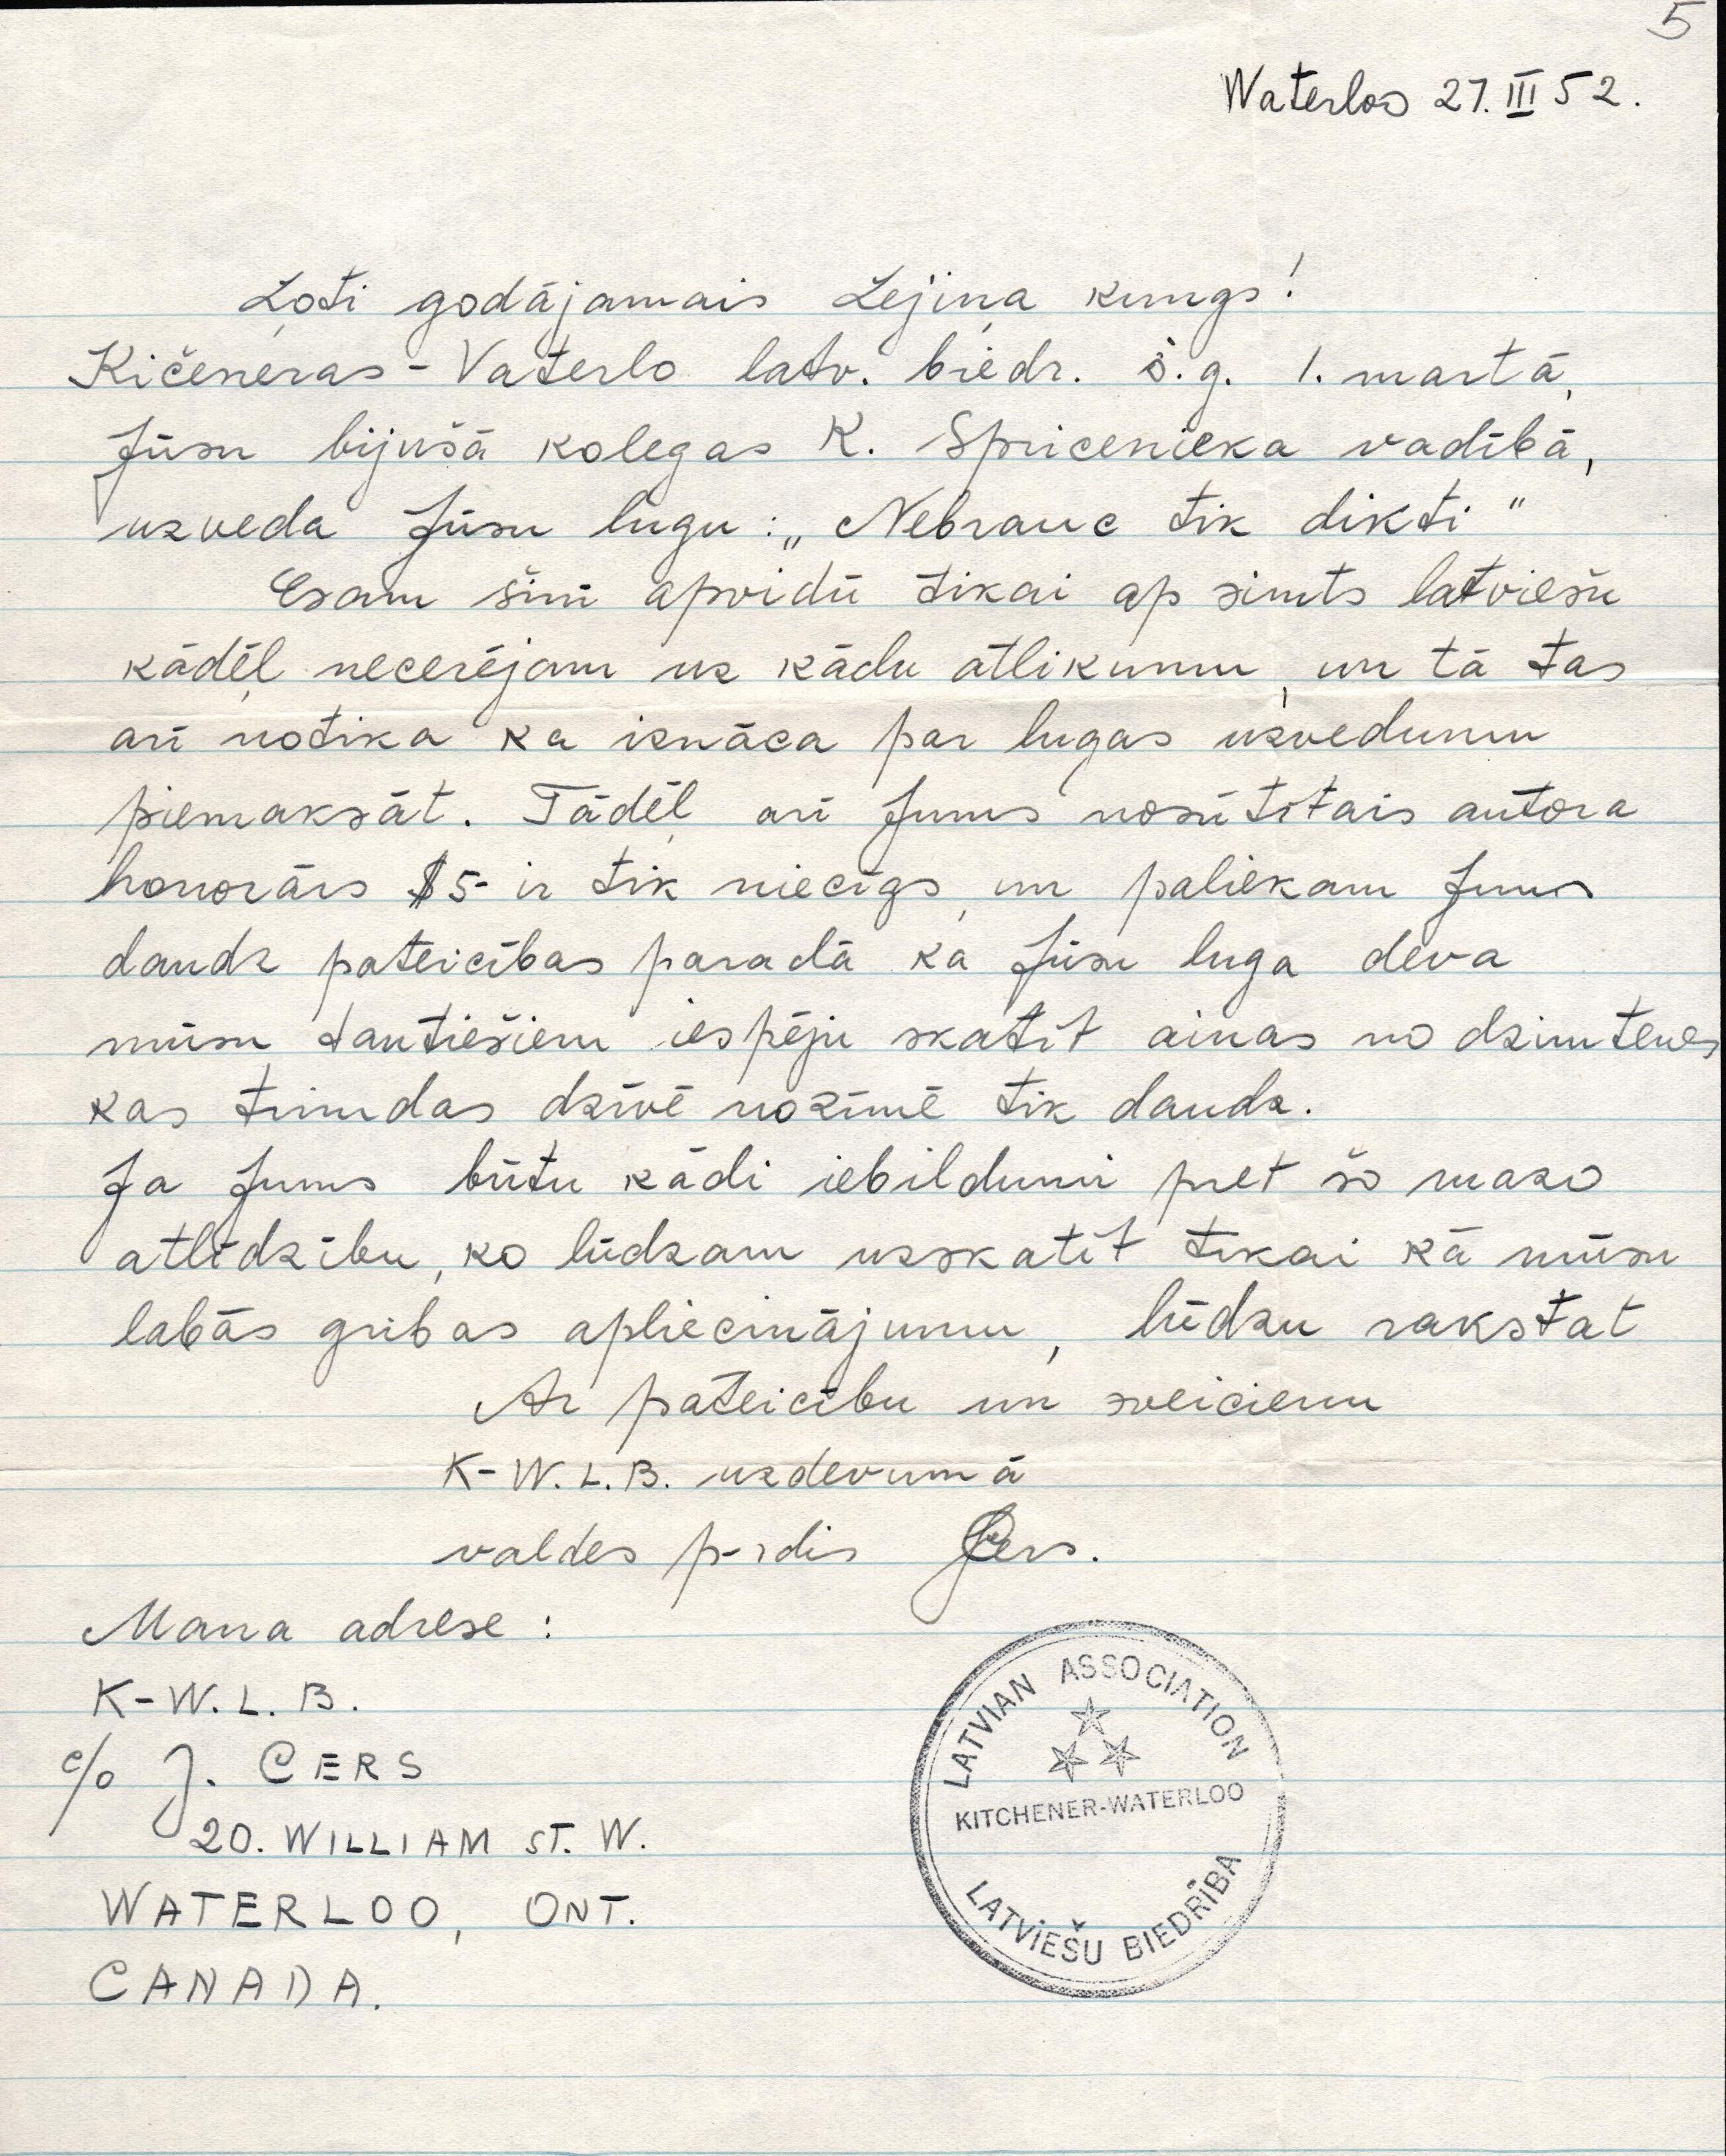 5
Waterloo 27. III 52.
Ļoti godājamais Lejiņa kungs!
Kičeneras - Vaterlo latv. biedr. š.g. 1. martā,
Jūsu bijušā kolegas K. Spricenieka vadībā,
uzveda Jūsu lugu: „Nebrauc tik dikti"
Esam šinī apvidū tikai ap simts latviešu
kādēļ necerējam uz kādu atlikumu, un tā tas
arī notika ka iznāca par lugas uzvedumu
piemaksāt. Tādēļ arī Jums nosūtītais autora
honorārs $5- ir tik niecīgs, un paliekam Jums
daudz pateicības parādā ka Jūsu luga deva
mūsu tautiešiem iespēju skatīt ainas no dzimtenes
kas trimdas dzīvē nozīmē tik daudz.
Ja Jums būtu kādi iebildumi pret šo mazo
atlīdzību, ko lūdzam uzskatīt tikai kā mūsu
labās gribas apliecinājumu, lūdzu rakstat
Ar pateicību un sveicienu
K-W.L.B. uzdevumā
valdes p-rdis JCers.
Mana adrese:
K-W.L.B.
c/o J. CERS
20. WILLIAM ST. W.
WATERLOO, ONT.
CANADA.
LATVIAN ASSOCIATION
KITCHENER-WATERLOO
LATVIEŠU BIEDRĪBA